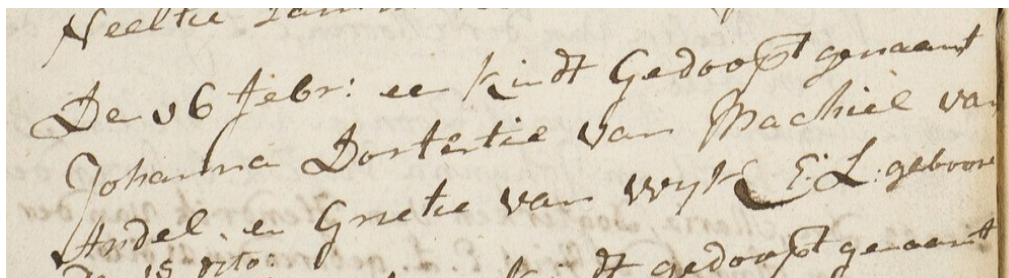 Neeltie
De 16 febr: ee Kindt Gedoopt genaamt
Johanna Dortertie van Machiel van
Andel. en Grietie van Wyk E: L: geboore
Kindt gedoopt genaamt